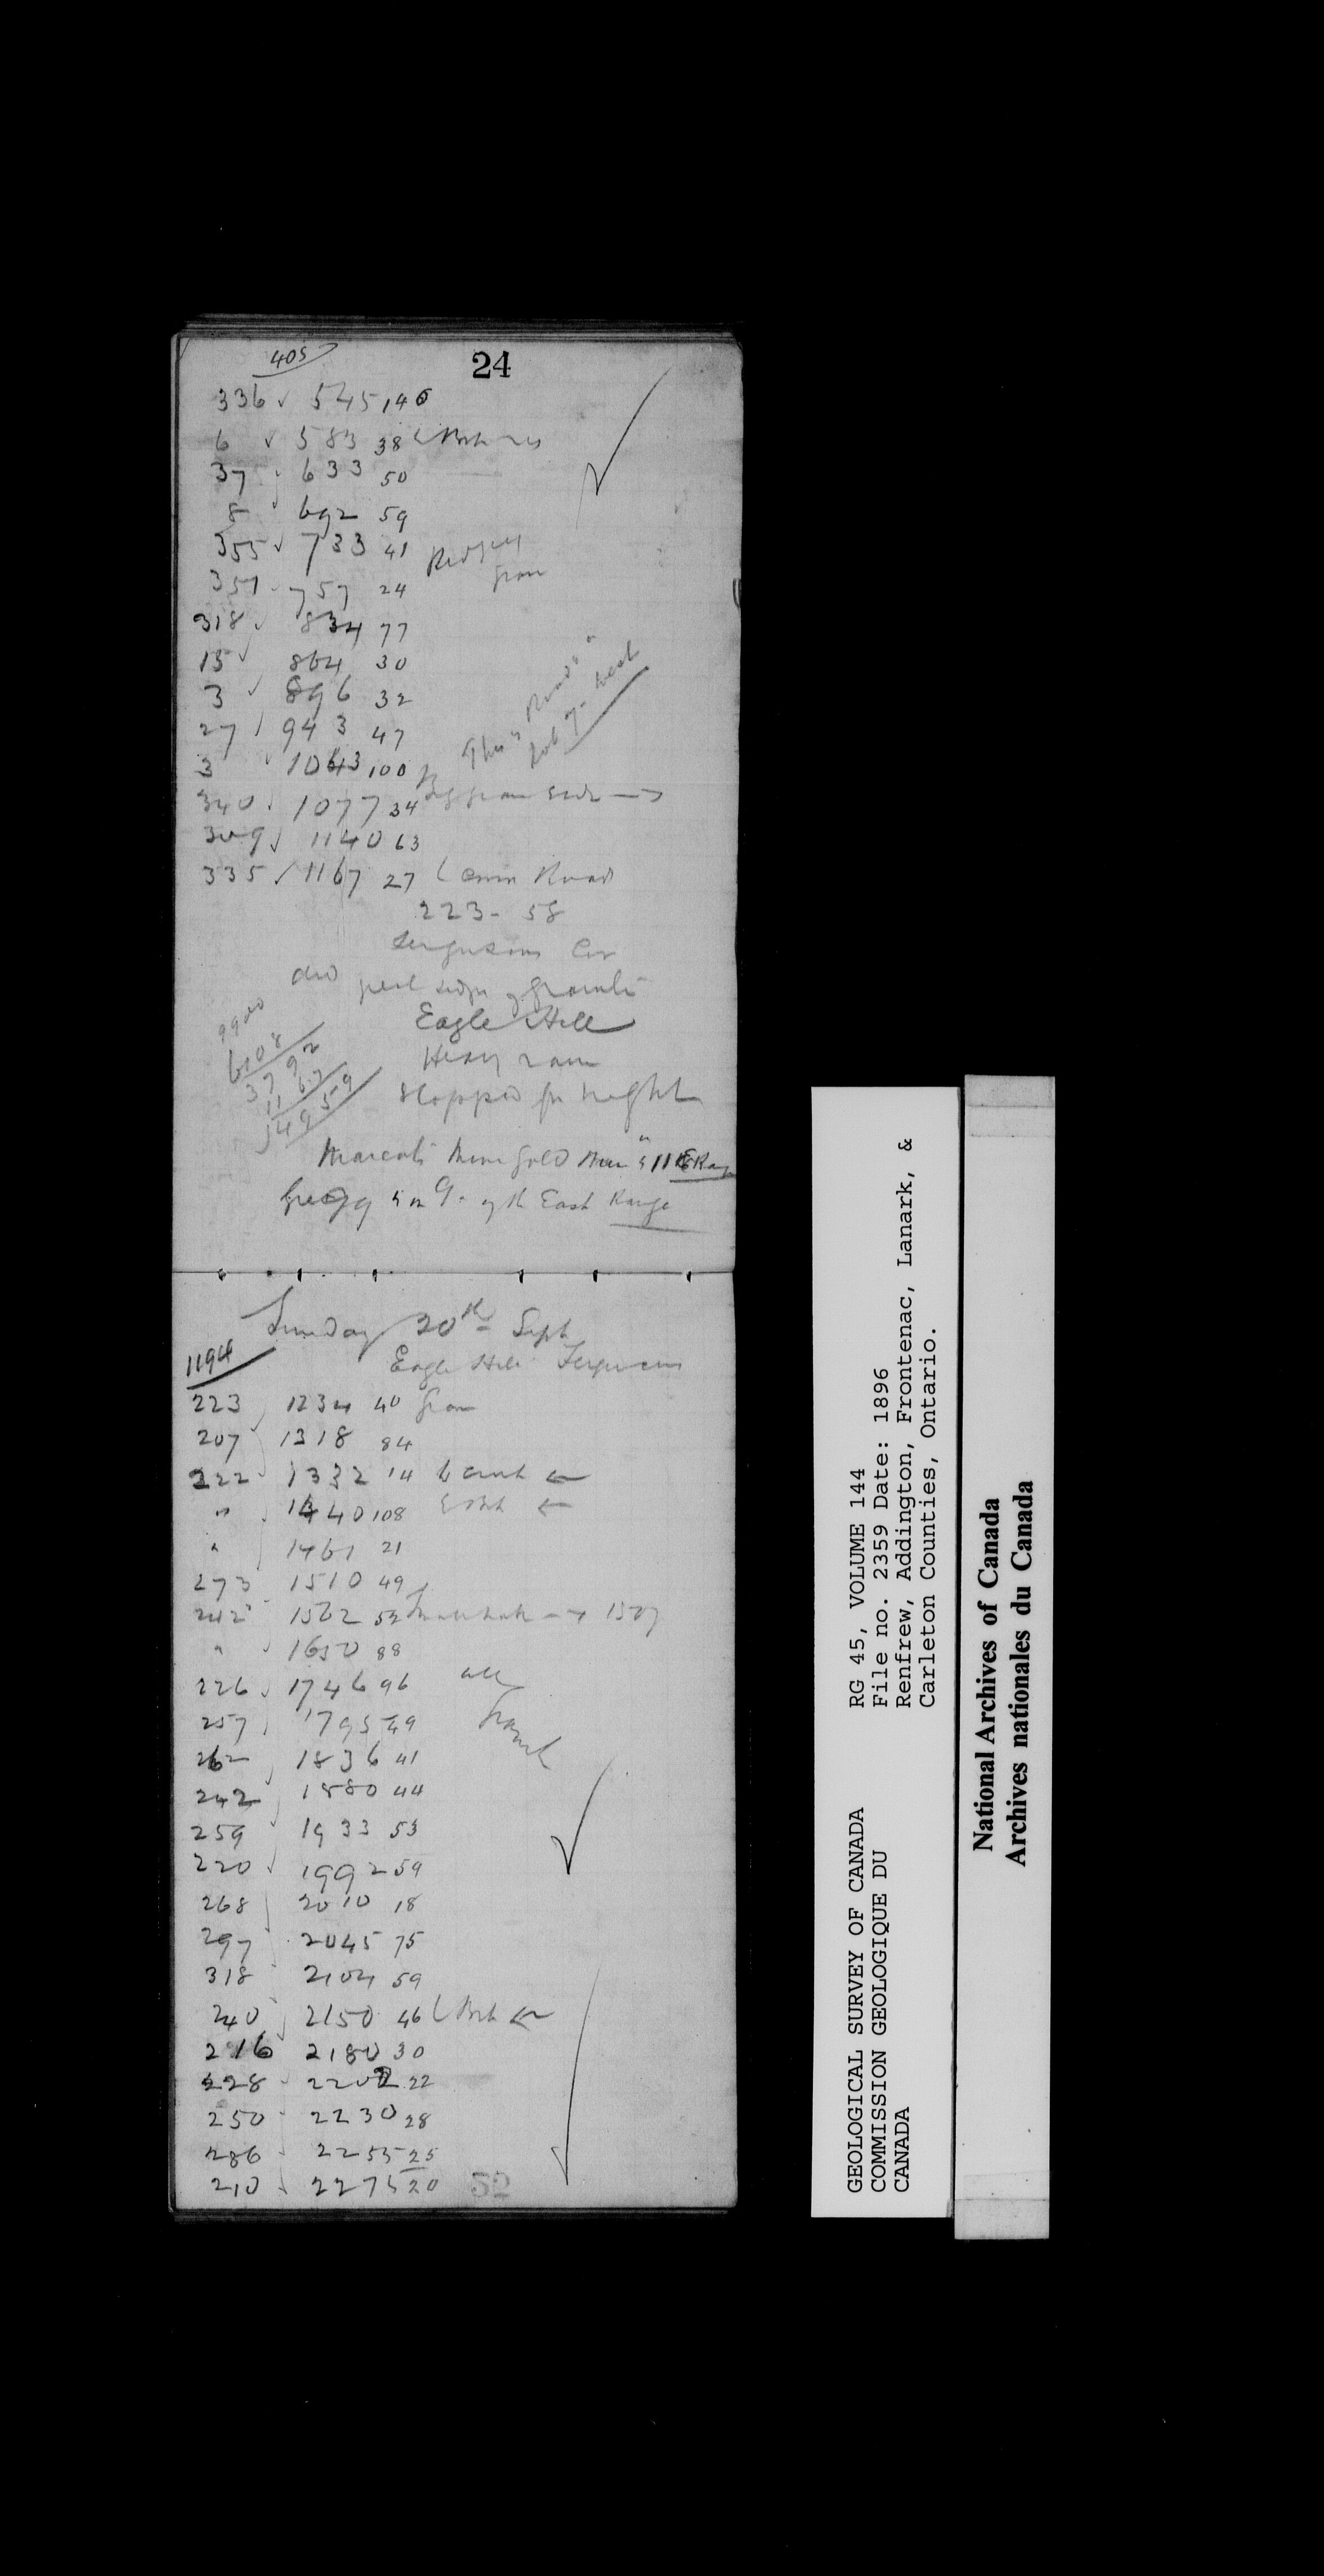 405
24
336 ✓ 545 140
6 ✓ 583 38
37 633 50
8 692 59
355 ✓ 733 41
351 757 24
318 ✓ 834 77
15 ✓ 864 30
3 ✓ 896 32
27 943 47
3 ✓ 1043 100
340 1077 34
309 ✓ 1140 63
335 ✓ 1167 27 Road
223 - 58
Fergusons Cor
Eagle Hill
Heavy rain
Stopped for night
9900
6108
3792
1167
4959
Gold
Gregg 5 on 9. of the East Range
Sunday 20th Sept
1194
Eagle Hill Fergusons
223 1234 40 Gran
207 1318 84
222 1332 14 ←
" 1440 108 ←
" 1461 21
273 1510 49
242 1562 52 → 1507
" 1650 88
226 ✓ 1746 96 all
257 1795 49
262 1836 41
242 1880 44
259 1933 53
220 ✓ 1992 59
268 2010 18
297 2045 75
318 2104 59
240 2150 46 ←
216 2180 30
228 2202 22
250 2230 28
286 2255 25
210 ✓ 2275 20
52
GEOLOGICAL SURVEY OF CANADA
COMMISSION GEOLOGIQUE DU
CANADA
RG 45, VOLUME 144
File no. 2359 Date: 1896
Renfrew, Addington, Frontenac, Lanark, &
Carleton Counties, Ontario.
National Archives of Canada
Archives nationales du Canada